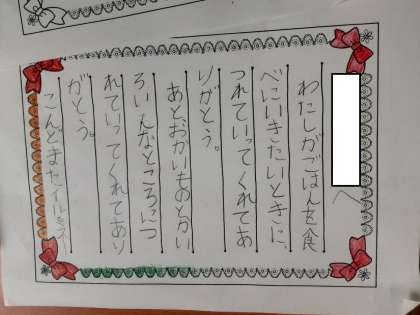 へ
わたしがごはんを食
べにいきたいときに、
つれていってくれてあ
りがとう。
あとおかいものとかい
ろいんなところにつ
れていってくれてあり
がとう。
こんどまたイルミネ